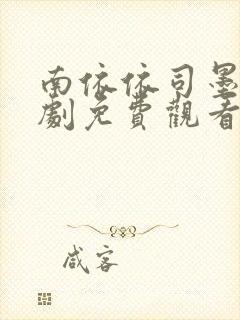 南依依司墨
劇免費觀看
咸客